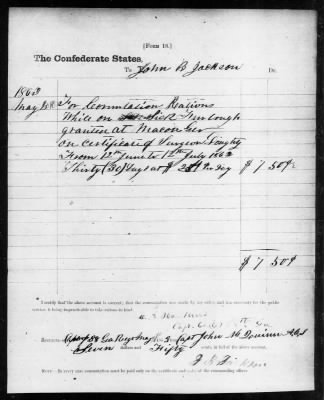 [Form 18.]
The Confederate States,
To John B Jackson Dr.
1863
May
For Commutation Rations
While on Sick Furlough
granted at Macon Geo
on certificate of Surgeon
From 12th June to 12th July 1862
Thirty (30) Days at $ 25¢ Per Day $ 7 50¢
$ 7 50¢
I certify that the above account is correct; that the commutation was made by my order, and was necessary for the public
service, it being impracticable to take rations in kind.
Capt
Received, Geo Capt John M
Seven dollars and Fifty cents in full of the above account.
J B Jackson
Note.—In every case commutation must be paid only on the certificate and order of the commanding officer.